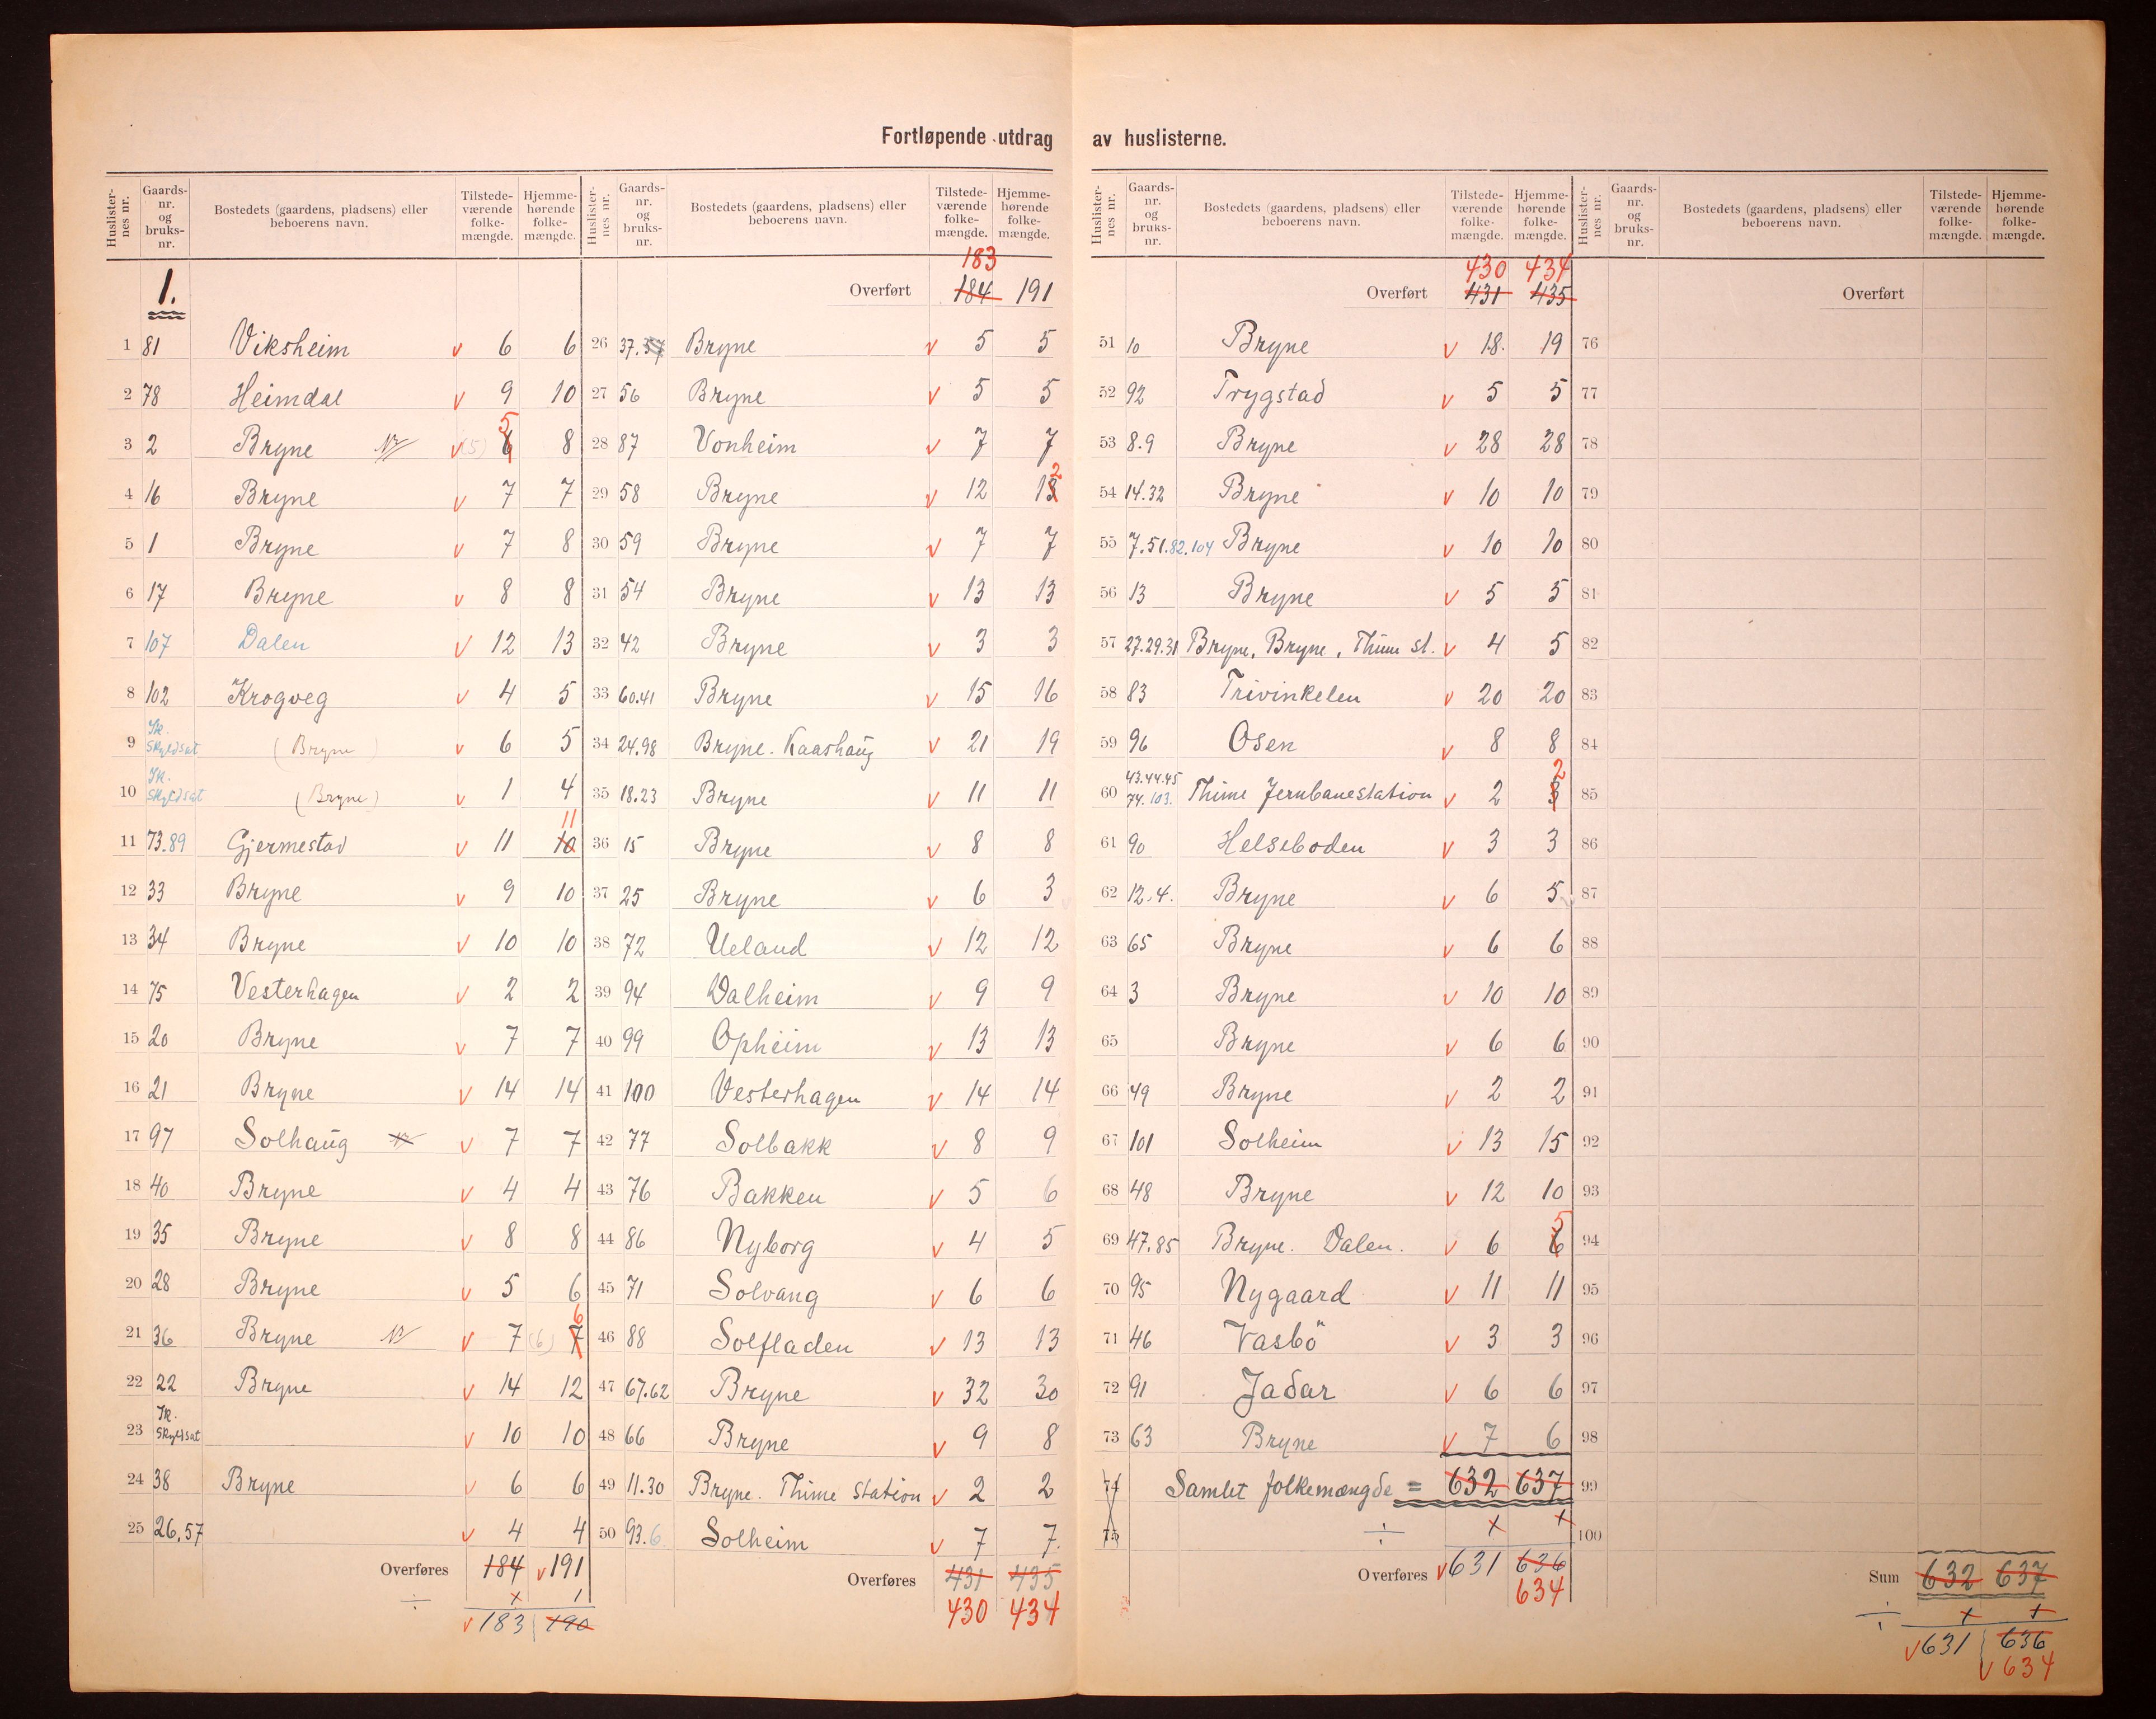 Fortløpende utdrag av huslisterne.
Huslisternes nr. Gaards-nr. og bruks-nr. Bostedets (gaardens, pladsens) eller beboerens navn. Tilstede-værende folke-mængde. Hjemme-hørende folke-mængde.
1.
1 81 Viksheim v 6 6
2 78 Heimdal v 9 10
3 2 Bryne v (5) 6 5 8
4 16 Bryne v 7 7
5 1 Bryne v 7 8
6 17 Bryne v 8 8
7 107 Dalen v 12 13
8 102 Krogveg v 4 5
9 Ik. Skyldsat (Bryne) v 6 5
10 Ik. Skyldsat (Bryne) v 1 4
11 73.89 Gjermestad v 11 10 11
12 33 Bryne v 9 10
13 34 Bryne v 10 10
14 75 Vesterhagen v 2 2
15 20 Bryne v 7 7
16 21 Bryne v 14 14
17 97 Solhaug v 7 7
18 40 Bryne v 4 4
19 35 Bryne v 8 8
20 28 Bryne v 5 6
21 36 Bryne v 7 (6) 7 6
22 22 Bryne v 14 12
23 Ik. Skyldsat v 10 10
24 38 Bryne v 6 6
25 26.57 v 4 4
Overføres 184 v 191
÷ 1
v 183 190
Huslisternes nr. Gaards-nr. og bruks-nr. Bostedets (gaardens, pladsens) eller beboerens navn. Tilstede-værende folke-mængde. Hjemme-hørende folke-mængde.
183
Overført 184 191
26 37. Bryne v 5 5
27 56 Bryne v 5 5
28 87 Vonheim v 7 7
29 58 Bryne v 12 13 2
30 59 Bryne v 7 7
31 54 Bryne v 13 13
32 42 Bryne v 3 3
33 60.41 Bryne v 15 16
34 24.98 Bryne. Kaashaug v 21 19
35 18.23 Bryne v 11 11
36 15 Bryne v 8 8
37 25 Bryne v 6 3
38 72 Ueland v 12 12
39 94 Dalheim v 9 9
40 99 Opheim v 13 13
41 100 Vesterhagen v 14 14
42 77 Solbakk v 8 9
43 76 Bakken v 5 6
44 86 Nyborg v 4 5
45 71 Solvang v 6 6
46 88 Solfladen v 13 13
47 67.62 Bryne v 32 30
48 66 Bryne v 9 8
49 11.30 Bryne. Thime station v 2 2
50 93.6 Solheim v 7 7.
Overføres 431 435
430 434
Huslisternes nr. Gaards-nr. og bruks-nr. Bostedets (gaardens, pladsens) eller beboerens navn. Tilstede-værende folke-mængde. Hjemme-hørende folke-mængde.
430 434
Overført 431 435
51 10 Bryne v 18. 19
52 92 Trygstad v 5 5
53 8.9 Bryne v 28 28
54 14.32 Bryne v 10 10
55 7.51.82.104 Bryne v 10 10
56 13 Bryne v 5 5
57 27.29.31 Bryne, Bryne, Thime st. v 4 5
58 83 Trivinkelen v 20 20
59 96 Osen v 8 8
60 43.44.45 74.103. Thime Jernbanestation v 2 3 2
61 90 Helseboden v 3 3
62 12.4. Bryne v 6 5
63 65 Bryne v 6 6
64 3 Bryne v 10 10
65 Bryne v 6 6
66 49 Bryne v 2 2
67 101 Solheim v 13 15
68 48 Bryne v 12 10
69 47.85 Bryne. Dalen. v 6 6 5
70 95 Nygaard v 11 11
71 46 Vasbö v 3 3
72 91 Jadar v 6 6
73 63 Bryne v 7 6
74 Samlet folkemængde = 632 637
75 ÷
Overføres v 631 636
634
Huslisternes nr. Gaards-nr. og bruks-nr. Bostedets (gaardens, pladsens) eller beboerens navn. Tilstede-værende folke-mængde. Hjemme-hørende folke-mængde.
Overført
76
77
78
79
80
81
82
83
84
85
86
87
88
89
90
91
92
93
94
95
96
97
98
99
100
Sum 632 637
÷
v 631 636
v 634